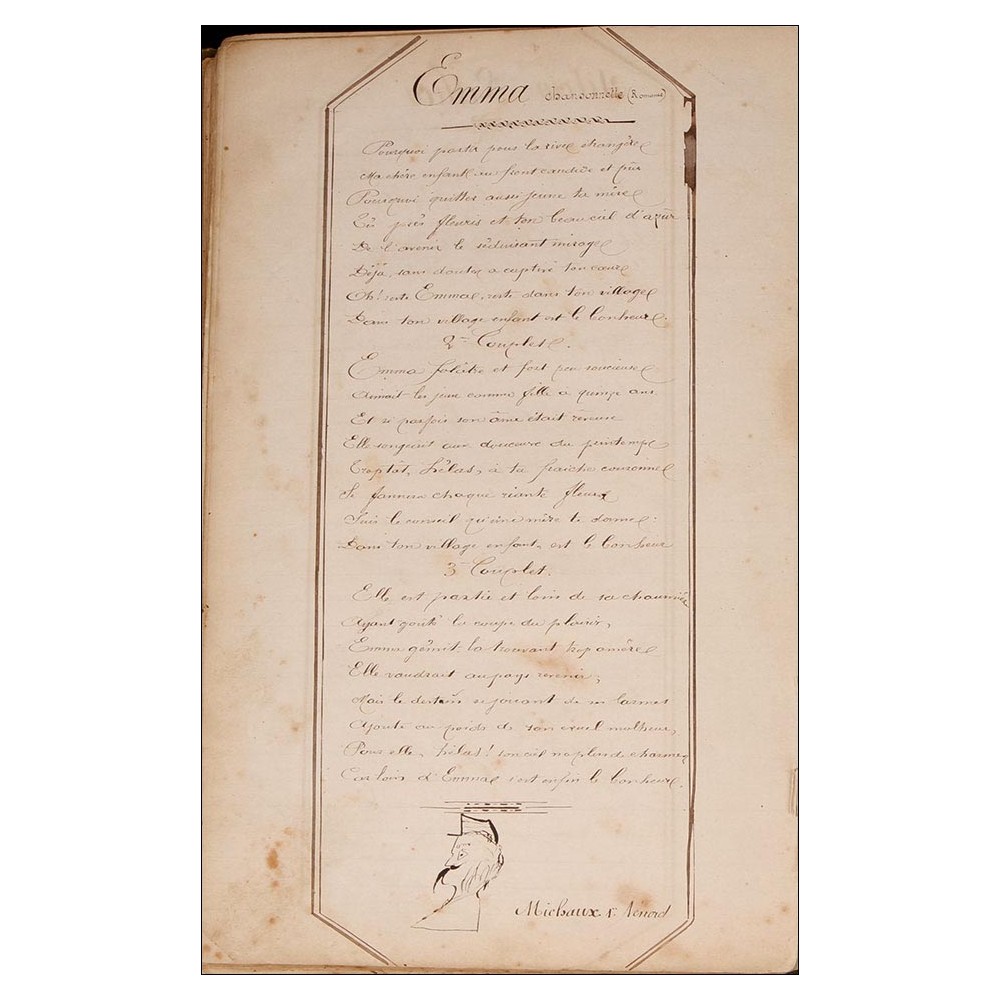 Emma chansonnette (Romance)
Pourquoi partir pour la rive étrangère
Ma chère enfant au front candide et pûr
Pourquoi quitter aussi jeune ta mère
Tes près fleuris et ton beau ciel d'azur
De l'avenir le séduisant mirage
Déjà, sans doute, a captivé ton cœur
Oh! reste Emma, reste dans ton village
Dans ton village enfant est le bonheur.
2me Couplet.
Emma folâtre et fort peu soucieuse
Aimait les jeux comme fille a quinze ans
Et si parfois son âme était rêveuse
Elle songeait aux douceurs du printemps
Trop tôt, hélas, à ta fraîche couronne
Se fannera chaque riante fleur
Suis le conseil qu'une mère te donne.
Dans ton village enfant, est le bonheur
3me Couplet.
Elle est partie et loin de sa chaumière
Ayant goûté la coupe du plaisir,
Emma gémit la trouvant trop amère
Elle vaudrait au pays revenir;
Mais le destin se jouant de ses larmes
Ajoute au poids de son cruel malheur,
Pour elle, hélas! son ciel n'a plus de charmes
Car loin d'Emma s'est enfin le bonheur.
Michaux